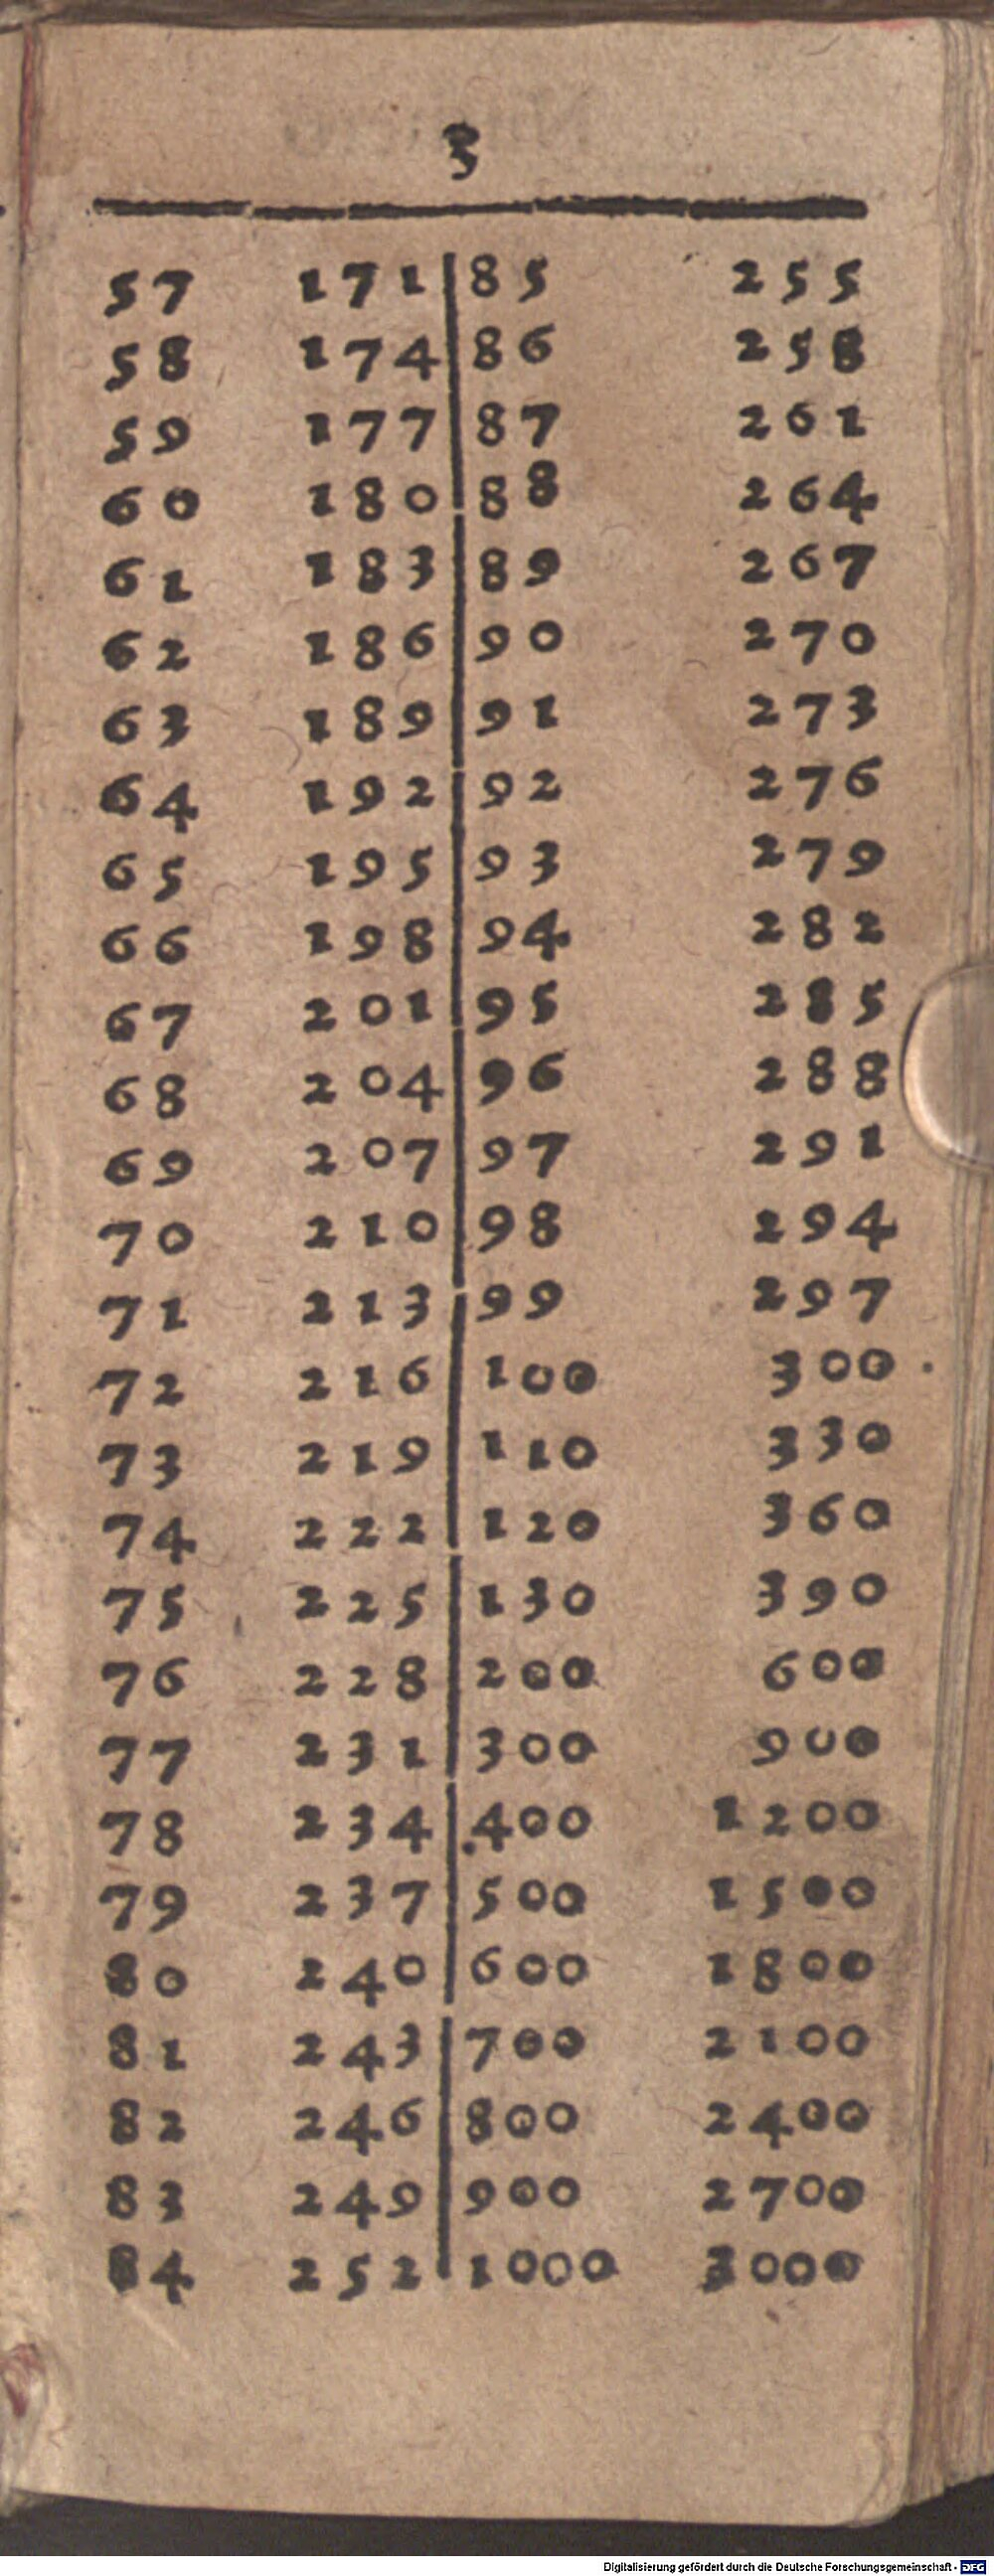 3
57 171 85 255
58 174 86 258
59 177 87 261
60 180 88 264
61 183 89 267
62 186 90 270
63 189 91 273
64 192 92 276
65 195 93 279
66 198 94 282
67 201 95 285
68 204 96 288
69 207 97 291
70 210 98 294
71 213 99 297
72 216 100 300
73 219 110 330
74 222 120 360
75 225 130 390
76 228 200 600
77 231 300 900
78 234 400 1200
79 237 500 1500
80 240 600 1800
81 243 700 2100
82 246 800 2400
83 249 900 2700
84 252 1000 3000
Digitalisierung gefördert durch die Deutsche Forschungsgemeinschaft - DFG